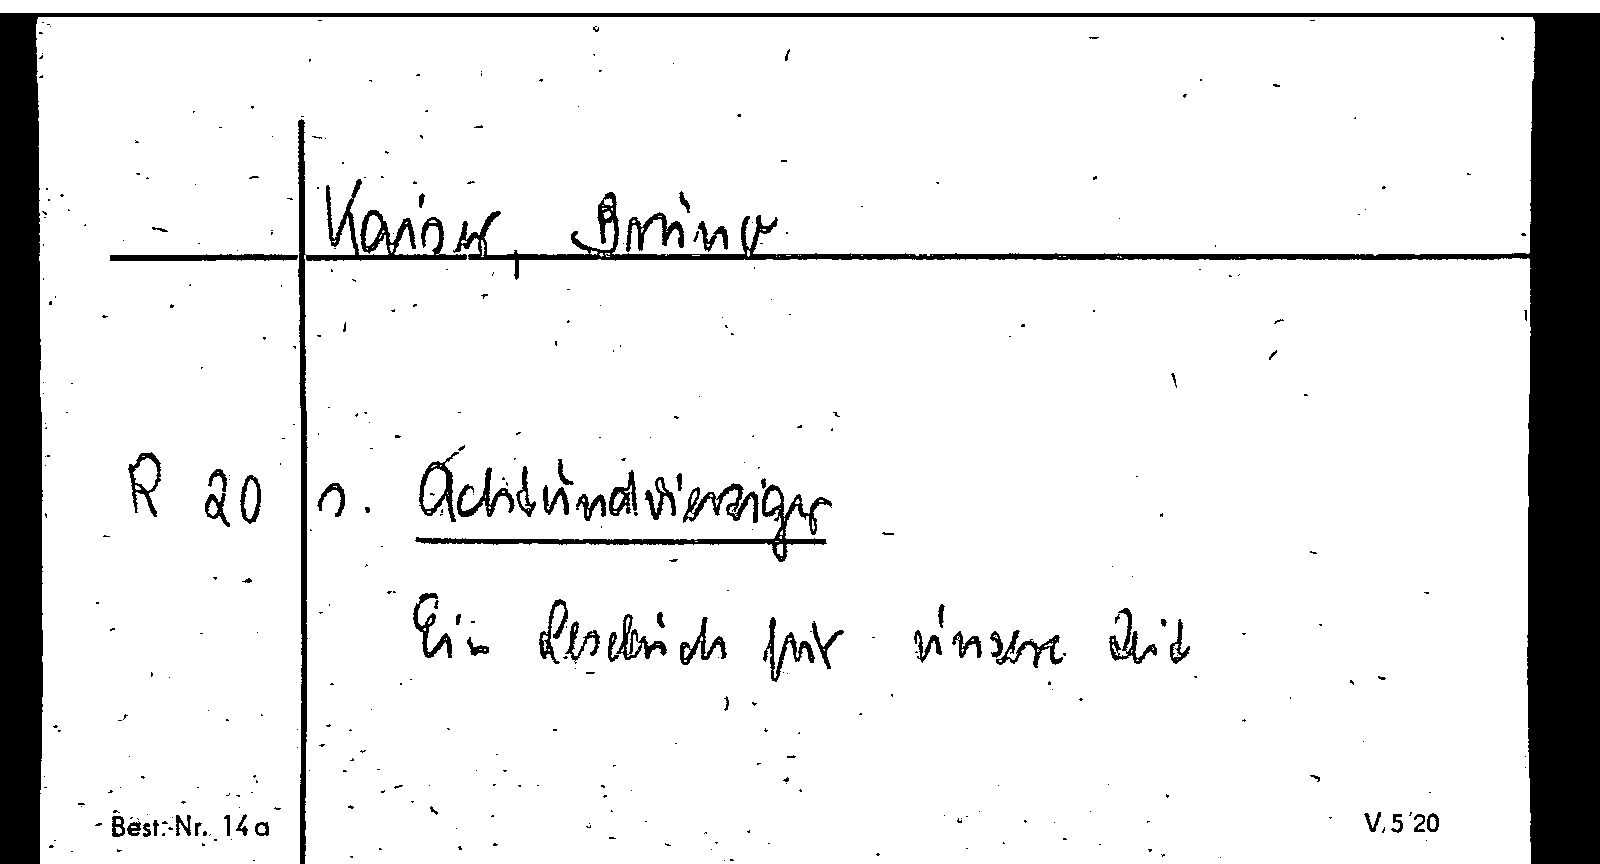 Kaiser, Bruno
R 20 s. Achtundvierziger
Ein Lesebuch für unsere Zeit
Best.-Nr. 14a V. 5 20